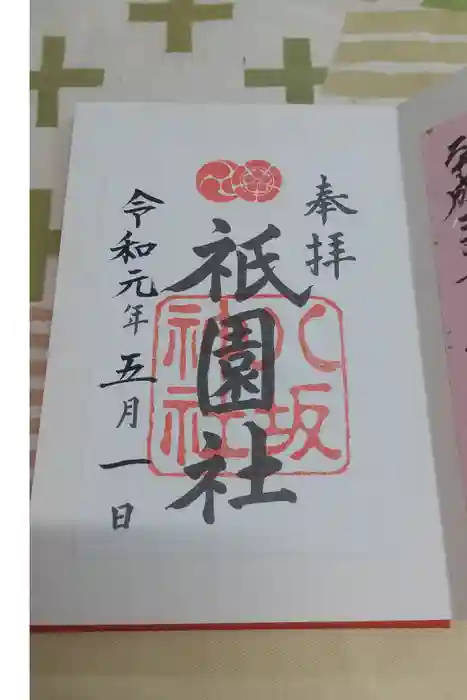 奉拝
八坂
神社
祇園社
令和元年五月一日